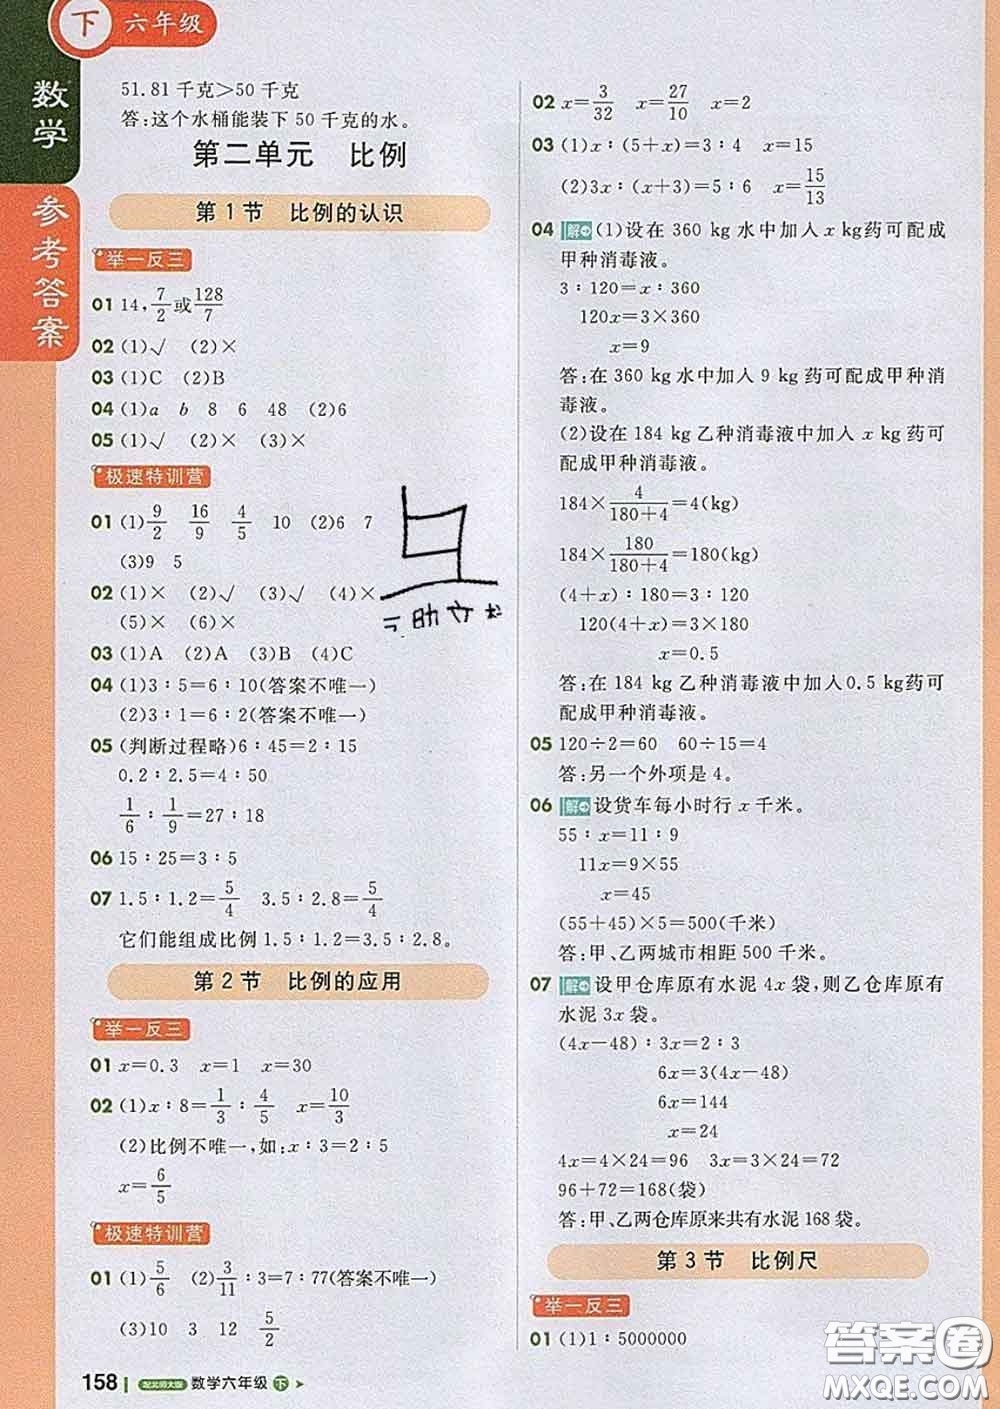 下 六年级
数学
参考答案
51.81 千克>50 千克
答:这个水桶能装下 50 千克的水。
第二单元 比例
第 1 节 比例的认识
举一反三
01 14, 7/2 或 128/7
02 (1)√ (2)×
03 (1)C (2)B
04 (1)a b 8 6 48 (2)6
05 (1)√ (2)× (3)×
极速特训营
01 (1) 9/2 16/9 4/5 10 (2)6 7
(3)9 5
02 (1)× (2)√ (3)√ (4)×
(5)× (6)×
03 (1)A (2)A (3)B (4)C
04 (1)3∶5=6∶10(答案不唯一)
(2)3∶1=6∶2(答案不唯一)
05 (判断过程略)6∶45=2∶15
0.2∶2.5=4∶50
1/6∶1/9=27∶18
06 15∶25=3∶5
07 1.5∶1.2=5/4 3.5∶2.8=5/4
它们能组成比例 1.5∶1.2=3.5∶2.8。
第 2 节 比例的应用
举一反三
01 x=0.3 x=1 x=30
02 (1)x∶8=1/3∶4/5 x=10/3
(2)比例不唯一,如:x∶3=2∶5
x=6/5
极速特训营
01 (1) 5/6 (2) 3/11∶3=7∶77(答案不唯一)
(3)10 3 12 5/2
158 配北师大版 数学六年级 下
02 x=3/32 x=27/10 x=2
03 (1)x∶(5+x)=3∶4 x=15
(2)3x∶(x+3)=5∶6 x=15/13
04 解 (1)设在 360 kg 水中加入 x kg药可配成
甲种消毒液。
3∶120=x∶360
120x=3×360
x=9
答:在 360 kg 水中加入 9 kg 药可配成甲种消
毒液。
(2)设在 184 kg 乙种消毒液中加入 x kg 药可
配成甲种消毒液。
184×4/(180+4)=4(kg)
184×180/(180+4)=180(kg)
(4+x)∶180=3∶120
120(4+x)=3×180
x=0.5
答:在 184 kg 乙种消毒液中加入0.5 kg药可
配成甲种消毒液。
05 120÷2=60 60÷15=4
答:另一个外项是 4。
06 解 设货车每小时行 x 千米。
55∶x=11∶9
11x=9×55
x=45
(55+45)×5=500(千米)
答:甲、乙两城市相距 500 千米。
07 解 设甲仓库原有水泥 4x 袋,则乙仓库原有
水泥 3x 袋。
(4x-48)∶3x=2∶3
6x=3(4x-48)
6x=144
x=24
4x=4×24=96 3x=3×24=72
96+72=168(袋)
答:甲、乙两仓库原来共有水泥 168 袋。
第 3 节 比例尺
举一反三
01 (1)1∶5000000
答案圈
MXQE.COM